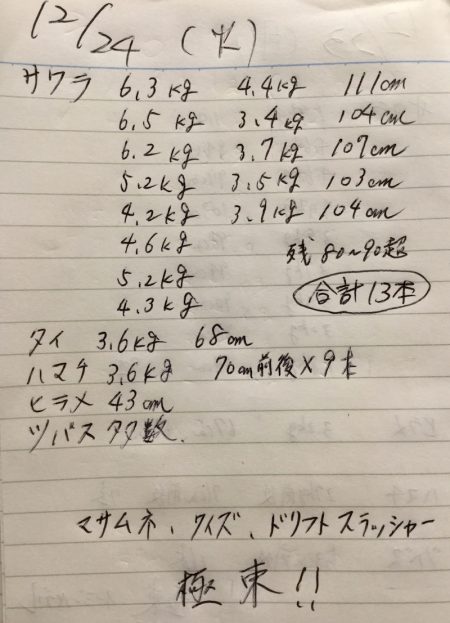 12/24 (火)
サワラ 6.3kg 4.4kg 111cm
6.5kg 3.4kg 104cm
6.2kg 3.7kg 107cm
5.2kg 3.5kg 103cm
4.2kg 3.9kg 104cm
4.6kg 残80~90超
5.2kg 合計13本
4.3kg
タイ 3.6kg 68cm
ハマチ 3.6kg 70cm前後×9本
ヒラメ 43cm
ツバス 多数.
マサムネ、ワイズ、ドリフトスラッシャー
極東!!